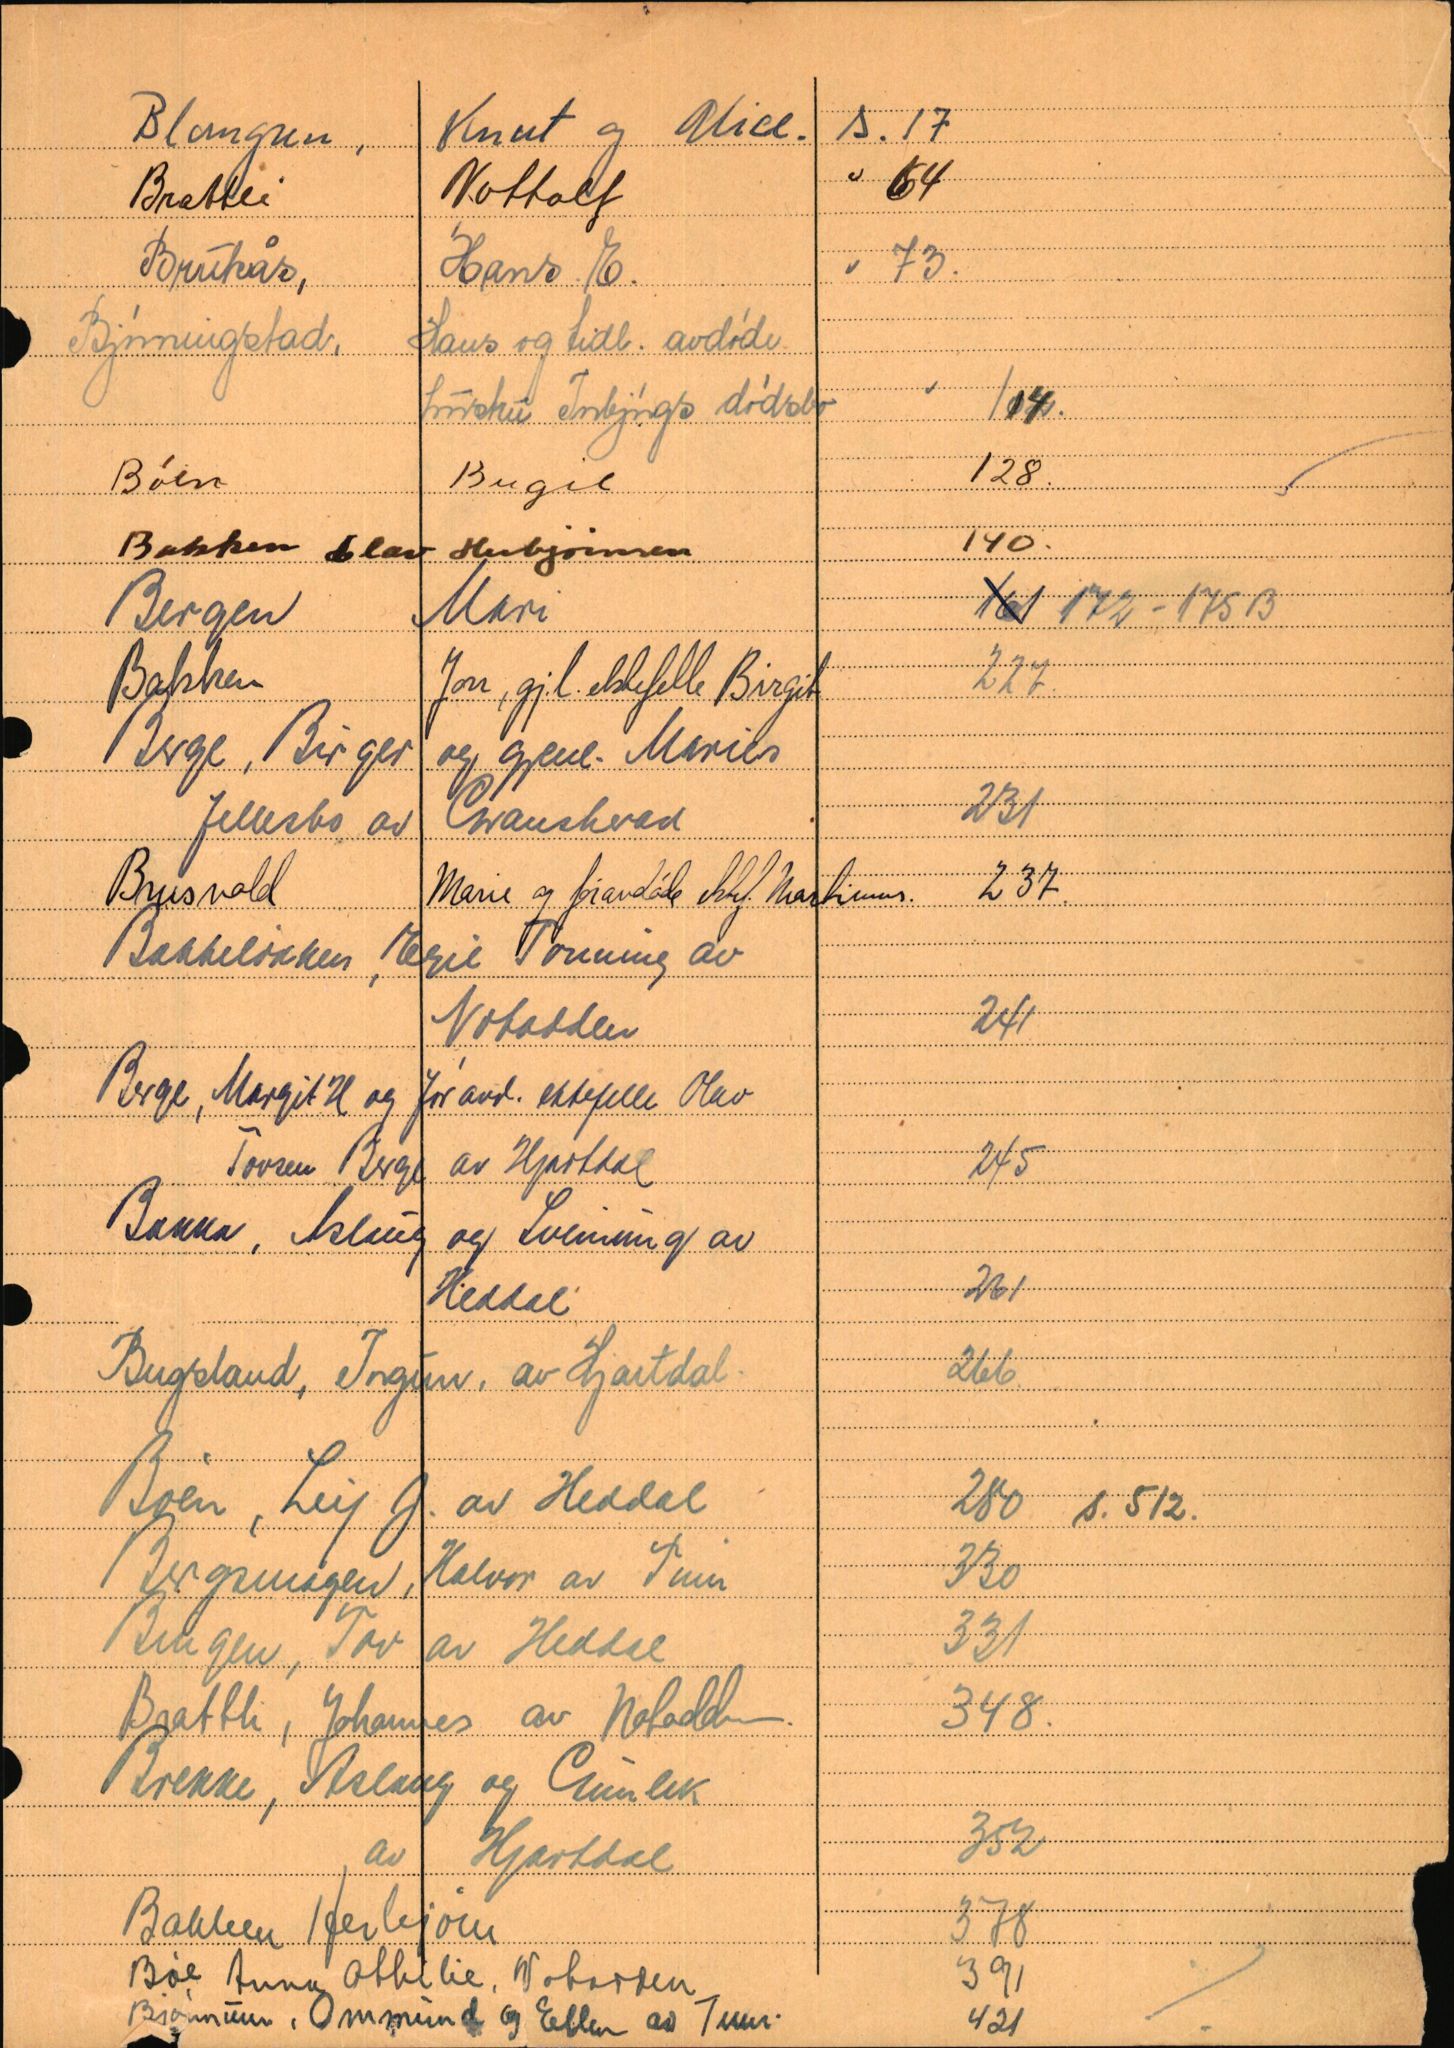 Blomgren, Knut og Alice. s. 17
Brattli Nottolf " 64
Brukås, Hans E. " 73.
Bjørningstad, Hans og tidl. avdøde
hustru Inbjørgs dødsbo " 114.
Böen Bugie 128.
Bakken Olav Herbjørnsen 140.
Bergen Mari 161 172-175 B
Bakken Jon, gj.l. ektefelle Birgit 227.
Berge, Birger og gjenl. Maries
fellesbo av Gransherad 231
Brusvold Marie og foravdøde ektef. Martinus. 237.
Bakkeløkken, Egil Tonning av
Notodden 241
Berge, Margit H og før avd. ektefelle Olav
Tovsen Berge av Hjartdal 245
Bakka, Aslaug og Sveinung av
Heddal 261
Bugeland, Ingunn, av Hjartdal. 266
Böen, Leif J. av Heddal 280 s. 512.
Bergsmogen, Halvor av Tinn 330
Bingen, Tov av Heddal 331
Brattli, Johannes av Notodden. 348.
Brekke, Aslaug og Gunlek
av Hjartdal 352
Bakken Herbjørn 378
Bøe Anna Othilie, Notodden 391
Bjørntun, Ommund og Ellen av Tinn. 421